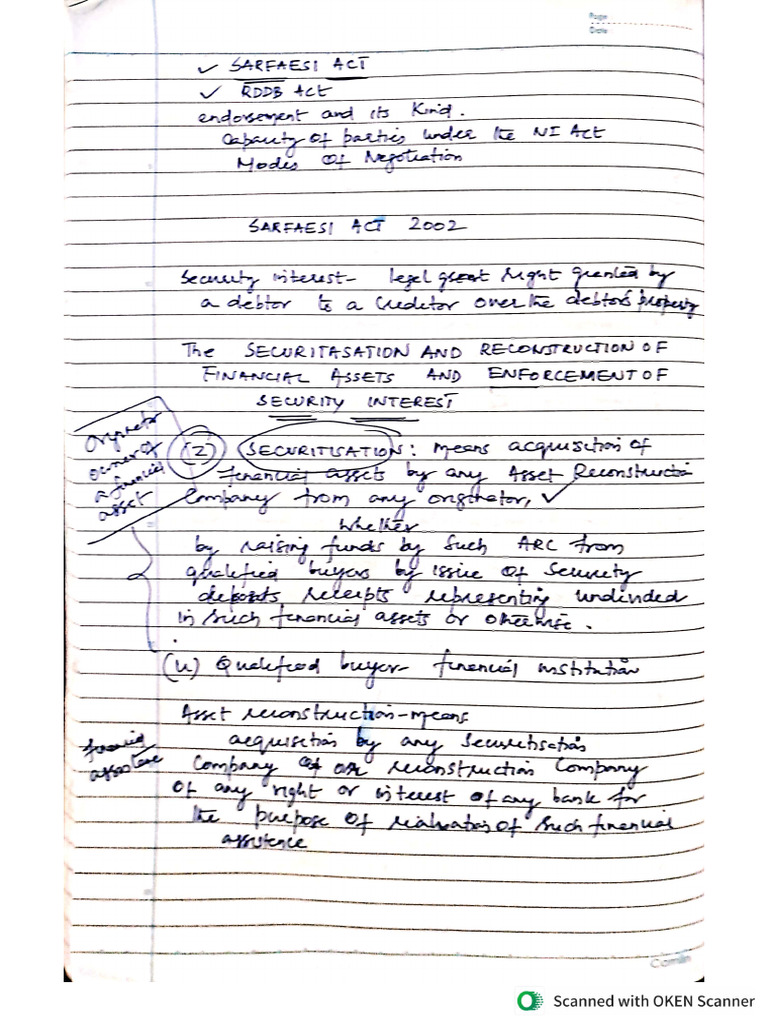 Page
Date
✓ SARFAESI ACT
✓ RDDB ACT
endorsement and its kind.
Capacity of parties under the NI Act
Modes of Negotiation
SARFAESI ACT 2002
Security interest- legal right granted by
a debtor to a creditor over the debtor's property
The SECURITASATION AND RECONSTRUCTION OF
FINANCIAL ASSETS AND ENFORCEMENT OF
SECURITY INTEREST
Originator
owner of
a financial
asset
(Z) SECURITISATION: means acquisition of
financial assets by any Asset Reconstruction
Company from any originator, ✓
whether
by raising funds by such ARC from
qualified buyers by issue of security
receipts representing undivided
in such financial assets or otherwise.
(u) Qualified buyer financial institution
Asset reconstruction-means
acquisition by any securitisation
financial
assistance
Company or reconstruction Company
of any right or interest of any bank for
the purpose of realisation of such financial
assistence
Camlin
Scanned with OKEN Scanner